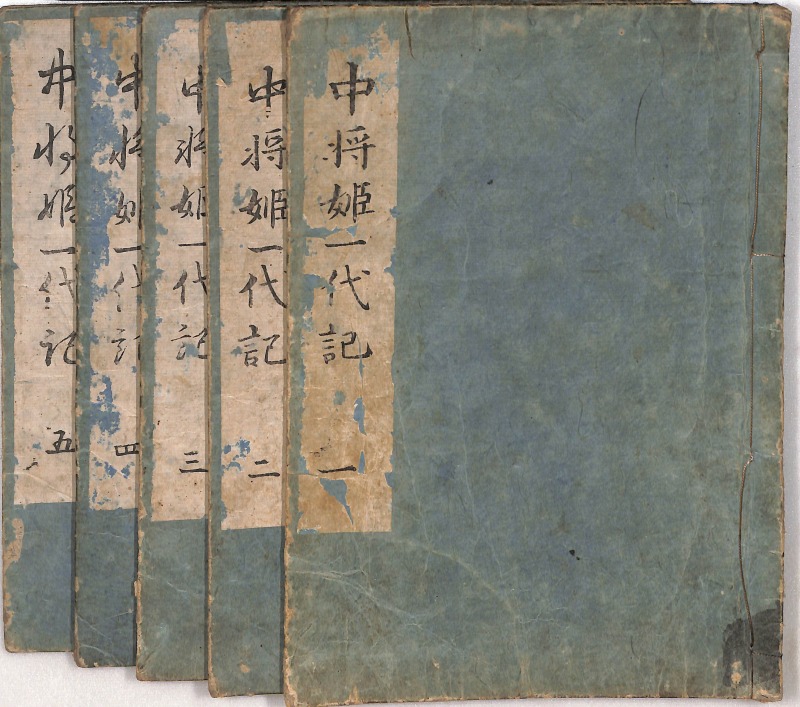 中将姫一代記 一
中将姫一代記 二
中将姫一代記 三
中将姫一代記 四
中将姫一代記 五